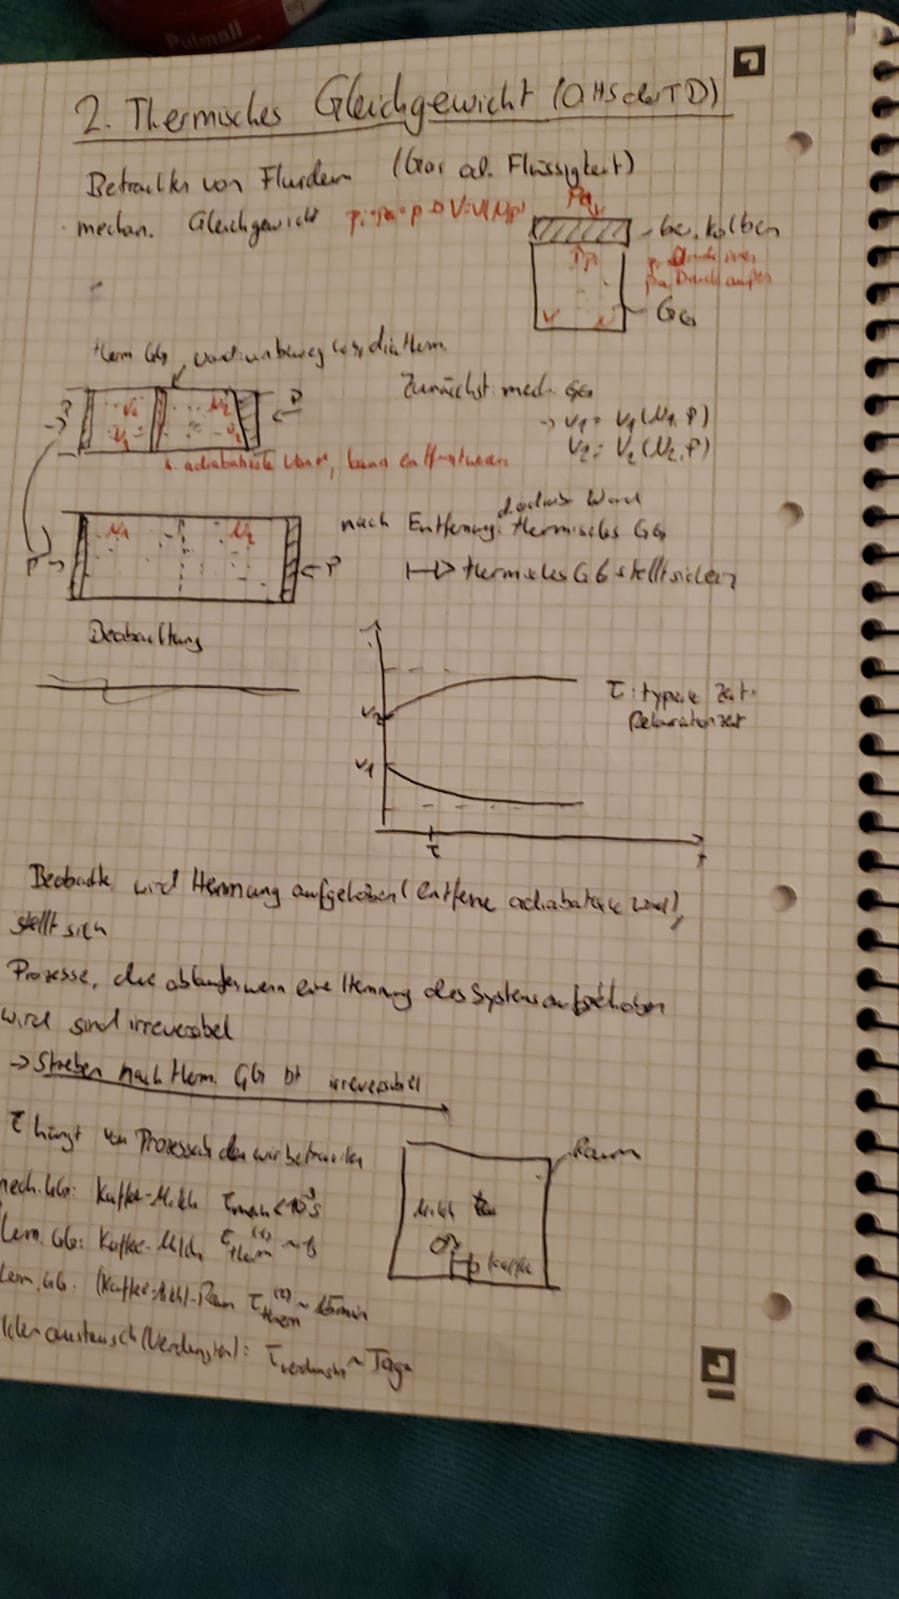 Pulmoll
2. Thermisches Gleichgewicht (0 HS der TD)
Betrachten von Fluiden (Gas od. Flüssigkeit)
mechan. Gleichgewicht pi=pa=p → V=V(N,p)
Pa
bew. Kolben
Pi
pi Druck innen
pa Druck außen
V N
Gas
therm GG, wand: unbeweg diatherm
Zunächst mech. GG
P V1 N1 N2 V2 P
→ V1 = V1(N1,P)
V2 = V2(N2,P)
adiabatische Wand, kann entfernt werden
nach Entfernung: thermisches GG
P N1 N2 P
↦ thermisches GG stellt sich ein
Beobachtung
V2
τ: typische Zeit
Relaxationszeit
V1
τ
t
Beobachte wird Hemmung aufgehoben (entferne adiabatische Wand),
stellt sich
Prozesse, die ablaufen wenn eine Hemmung des Systems aufgehoben
wird sind irreversibel
→ Streben nach therm. GG ist irreversibel
τ hängt von Prozess ab den wir betrachten
Raum
mech. GG: Kaffee-Milch τmech <10⁻³s
Milch
therm. GG: Kaffee-Milch τtherm⁽¹⁾ ~ s
Kaffee
therm. GG. (Kaffee-Milch)-Raum τtherm⁽²⁾ ~ 15min
austausch (Verdunsten): τverdunst ~ Tage